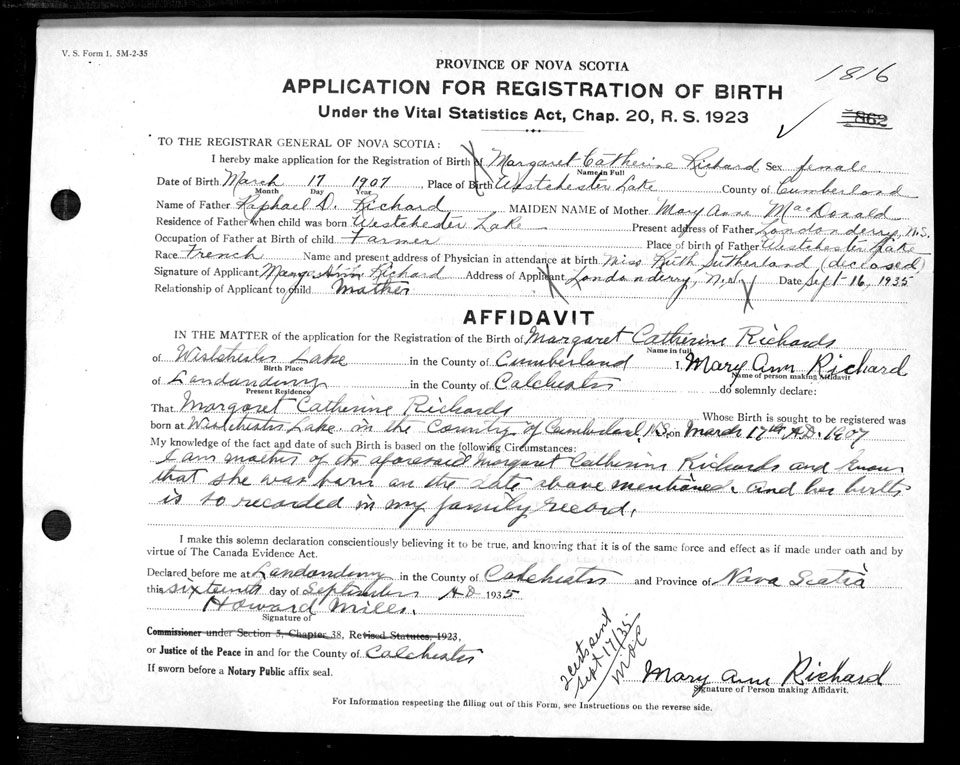 V. S. Form 1. 5M-2-35
PROVINCE OF NOVA SCOTIA
1816
APPLICATION FOR REGISTRATION OF BIRTH
862
Under the Vital Statistics Act, Chap. 20, R. S. 1923
TO THE REGISTRAR GENERAL OF NOVA SCOTIA:
I hereby make application for the Registration of Birth of Margaret Catherine Richard Sex female
Name in Full
Date of Birth March 17 1907 Place of Birth Westchester Lake County of Cumberland
Month Day Year
Name of Father Raphael D. Richard MAIDEN NAME of Mother Mary Anne MacDonald
Residence of Father when child was born Westchester Lake Present address of Father Londonderry, N.S.
Occupation of Father at Birth of child Farmer Place of Birth of Father Westchester Lake
Race French Name and present address of Physician in attendance at birth Miss Ruth Sutherland (declased)
Signature of Applicant Mary Ann Richard Address of Applicant Londonderry, N.S. Date Sept 16, 1935
Relationship of Applicant to child Mother
AFFIDAVIT
IN THE MATTER of the application for the Registration of the Birth of Margaret Catherine Richards
Name in full
of Westchester Lake in the County of Cumberland I, Mary Ann Richard
Birth Place Name of person making Affidavit
of Londonderry in the County of Colchester do solemnly declare:
Present Residence
That Margaret Catherine Richards Whose Birth is sought to be registered was
born at Westchester Lake in the County of Cumberland, N.S. on March 17th A.D. 1907
My knowledge of the fact and date of such Birth is based on the following Circumstances:
I am mother of the aforesaid Margaret Catherine Richards and know
that she was born on the date above mentioned. and her birth
is so recorded in my family record.
I make this solemn declaration conscientiously believing it to be true, and knowing that it is of the same force and effect as if made under oath and by
virtue of The Canada Evidence Act.
Declared before me at Londonderry in the County of Colchester and Province of Nova Scotia
this sixteenth day of September A.D. 1935
Howard Mills.
Signature of
Commissioner under Section 5, Chapter 38, Revised Statutes, 1923,
or Justice of the Peace in and for the County of Colchester
If sworn before a Notary Public affix seal.
2 certs sent
Sept 17/35
Mary Ann Richard
Signature of Person making Affidavit.
For Information respecting the filling out of this Form, see Instructions on the reverse side.